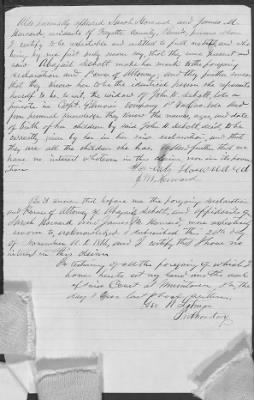 Also personally appeared Sarah Howard and James M.
Howard residents of Fayette County, persons whom
I certify to be respectable and entitled to full credit and who
being by me first duly sworn say that they were present and
saw Abigail Abbott make her mark to the foregoing
declaration and Power of Attorney, and they further swear
that they know her to be the identical person she represents
herself to be, to wit, the widow of John H. Abbott, late a
private in Capt. Company
from personal knowledge they know the names, ages, and date
of birth of her children by said John H. Abbott, dec'd, to be
correctly given by her in her declaration, and that
they are all the children she has. further that we
have no interest whatever in this claim nor in its prosecu
tion
Sarah Howard
J M Howard
Be it known that before me the foregoing declaration
and Power of Attorney of Abigail Abbott, and affidavits of
Sarah Howard and James M. Howard, were
sworn to, acknowledged & subscribed this 20th day
of November A.D. 1864, and I certify that I have no
interest in this claim
In testimony of all the foregoing of which I
have hereto set my hand and the seal
of said Court at this
day & year last above written.
Geo. H.